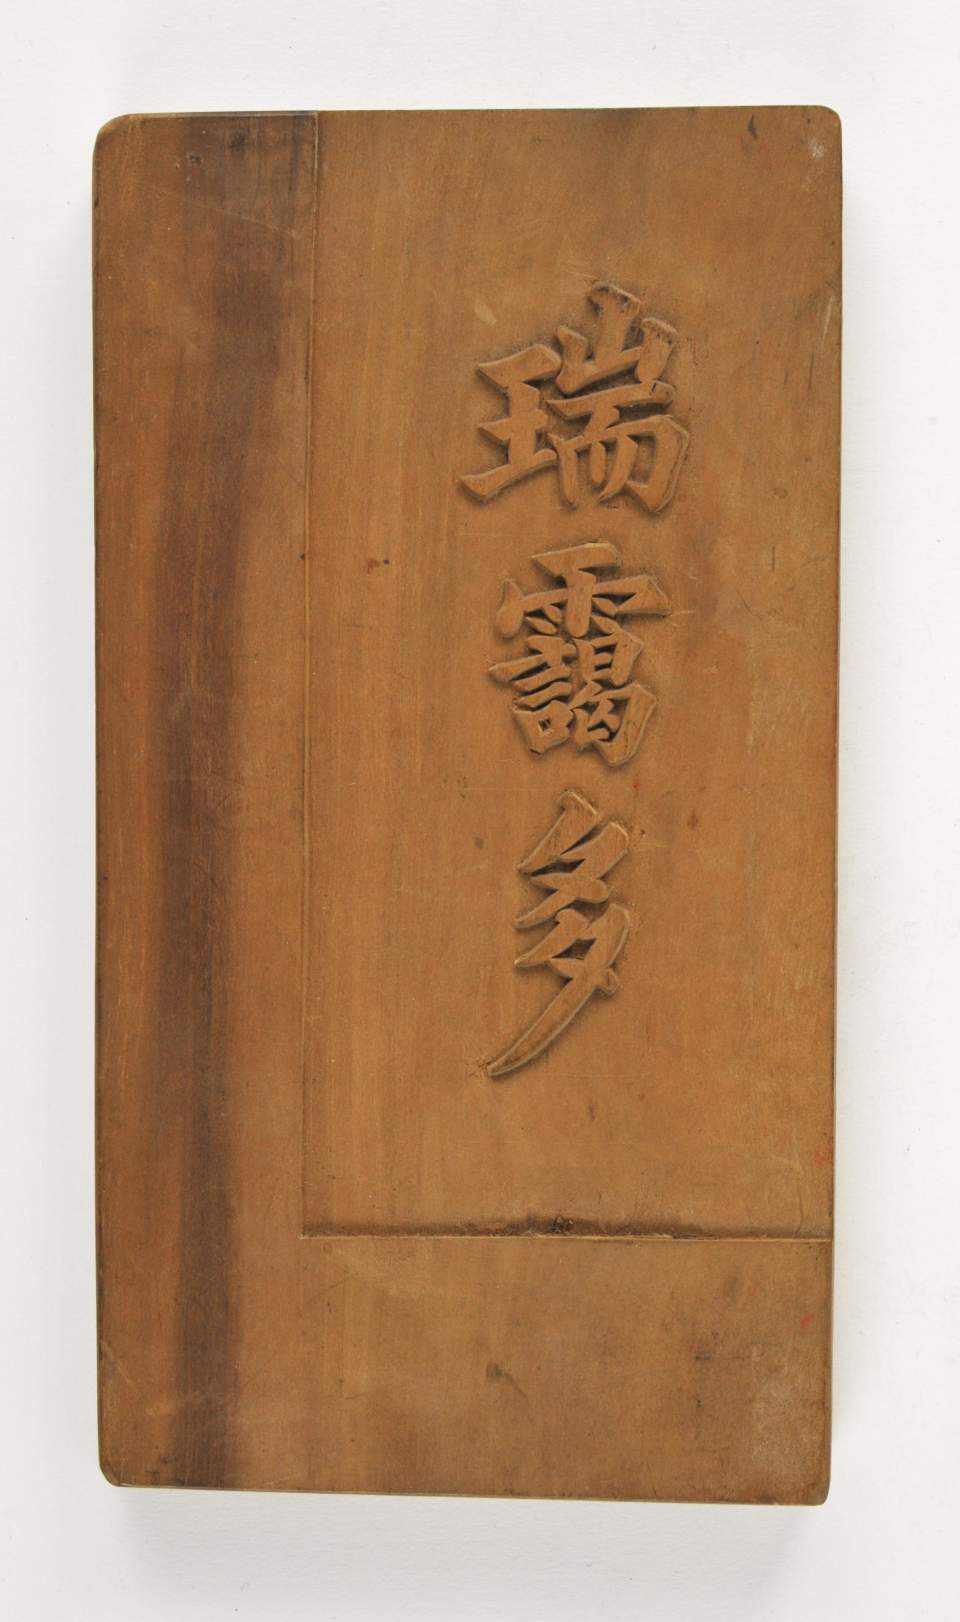 瑞靄多